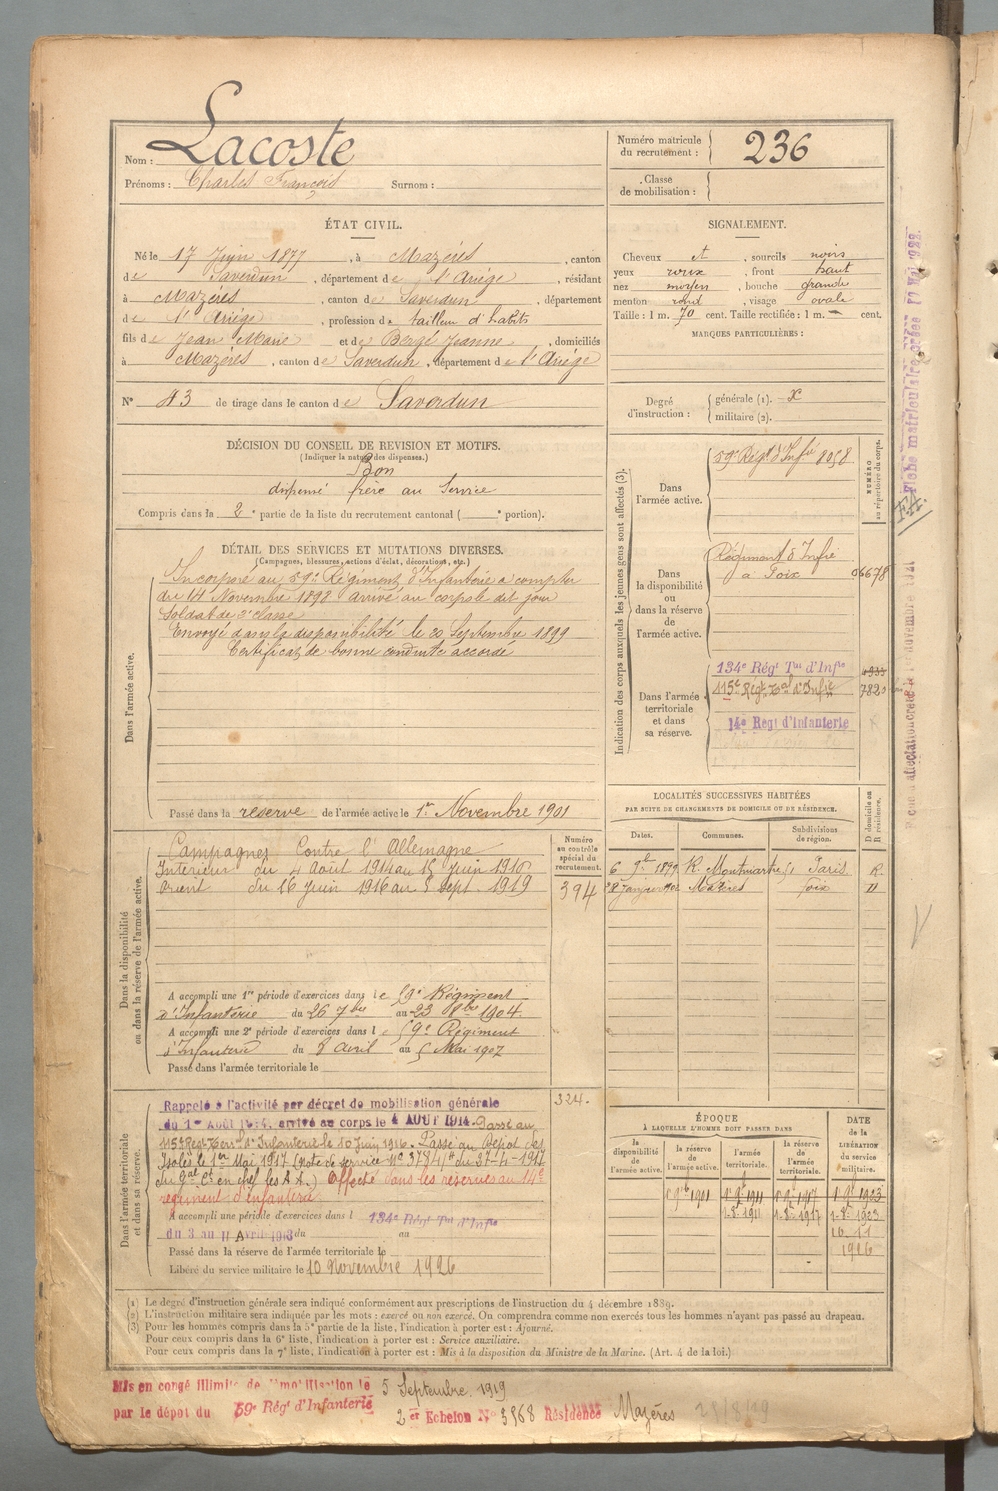 Nom : Lacoste
Prénoms : Charles François Surnom :
Numéro matricule du recrutement : 236
Classe de mobilisation :
ÉTAT CIVIL.
Né le 17 Juin 1877, à Mazères, canton
de Saverdun, département de l'Ariège, résidant
à Mazères, canton de Saverdun, département
de l'Ariège, profession de tailleur d'habits
fils de Jean Marie et de Bergé Jeanne, domiciliés
à Mazères, canton de Saverdun, département de l'Ariège
N° 43 de tirage dans le canton de Saverdun
SIGNALEMENT.
Cheveux et, sourcils noirs
yeux roux, front haut
nez moyen, bouche grande
menton rond, visage ovale
Taille : 1 m. 70 cent. Taille rectifiée : 1 m. - cent.
MARQUES PARTICULIÈRES :
Degré d'instruction : générale (1). x
militaire (2).
DÉCISION DU CONSEIL DE REVISION ET MOTIFS.
(Indiquer la nature des dispenses.)
Bon
dispensé frère au Service
Compris dans la 2e partie de la liste du recrutement cantonal ( e portion).
DÉTAIL DES SERVICES ET MUTATIONS DIVERSES.
(Campagnes, blessures, actions d'éclat, décorations, etc.)
Dans l'armée active.
Incorporé au 59e Régiment d'Infanterie a compter
du 14 Novembre 1898 arrivé au corps le dit jour
Soldat de 2e classe
Envoyé dans la disponibilité le 20 Septembre 1899
Certificat de bonne conduite accordé
Passé dans la réserve de l'armée active le 1er Novembre 1901
Indication des corps auxquels les jeunes gens sont affectés (3).
NUMÉRO au répertoire du corps.
Dans l'armée active.
59e Régt d'Infie 8058
Dans la disponibilité ou dans la réserve de l'armée active.
Régiment d'Infie
à Foix 06678
Dans l'armée territoriale et dans sa réserve.
134e Régt Tal d'Infie
115e Régt Tal d'Infie 7820
14e Regt d'Infanterie
LOCALITÉS SUCCESSIVES HABITÉES
PAR SUITE DE CHANGEMENTS DE DOMICILE OU DE RÉSIDENCE.
Dates. Communes. Subdivisions de région. D domicile ou R résidence.
6 9bre 1899 R. Montmartre 51 Paris R.
28 janvier 1902 Mazères Foix
Dans la disponibilité ou dans la réserve de l'armée active.
Numéro au contrôle spécial du recrutement.
394
Campagnes Contre l'Allemagne
Intérieur du 4 Août 1914 au 15 Juin 1916
Orient du 16 Juin 1916 au 5 Sept. 1919
A accompli une 1re période d'exercices dans le 59e Régiment
d'Infanterie du 26 7bre au 23 8bre 1904.
A accompli une 2e période d'exercices dans le 59e Régiment
d'Infanterie du 8 Avril au 5 Mai 1907
Passé dans l'armée territoriale le
Dans l'armée territoriale et dans sa réserve.
324.
Rappelé à l'activité par décret de mobilisation générale
du 1er Août 1914, arrivé au corps le 4 AOUT 1914. Passé au
115e Régt Terral d'Infanterie le 10 Juin 1916. Passé au Dépôt des
Isolés le 1er Mai 1917 (Note de service N° 3784/ du 27-4-1917
du Gal Ct en chef les A.A.) Affecté dans les réserves au 14e
régiment d'infanterie
A accompli une période d'exercices dans l 134e Régt Tal d'Infie
du 3 au 11 Avril 1913 du au
Passé dans la réserve de l'armée territoriale le
Libéré du service militaire le 10 Novembre 1926
ÉPOQUE
À LAQUELLE L'HOMME DOIT PASSER DANS
la disponibilité de l'armée active. la réserve de l'armée active. l'armée territoriale. la réserve de l'armée territoriale.
DATE de la LIBÉRATION du service militaire.
1 9bre 1901 1 9bre 1911 1 9bre 1917 1 9bre 1923
1-8-1911 1-8-1917 1-8-1923
10.11
1926
(1) Le degré d'instruction générale sera indiqué conformément aux prescriptions de l'instruction du 4 décembre 1889.
(2) L'instruction militaire sera indiquée par les mots : exercé ou non exercé. On comprendra comme non exercés tous les hommes n'ayant pas passé au drapeau.
(3) Pour les hommes compris dans la 5e partie de la liste, l'indication à porter est : Ajourné.
Pour ceux compris dans la 6e liste, l'indication à porter est : Service auxiliaire.
Pour ceux compris dans la 7e liste, l'indication à porter est : Mis à la disposition du Ministre de la Marine. (Art. 4 de la loi.)
Mis en congé illimité de démobilisation le 5 Septembre 1919
par le dépôt du 59e Régt d'Infanterie 2er Echelon N° 3568 Résidence Mazères 28/8/19
Fiche matriculaire créée